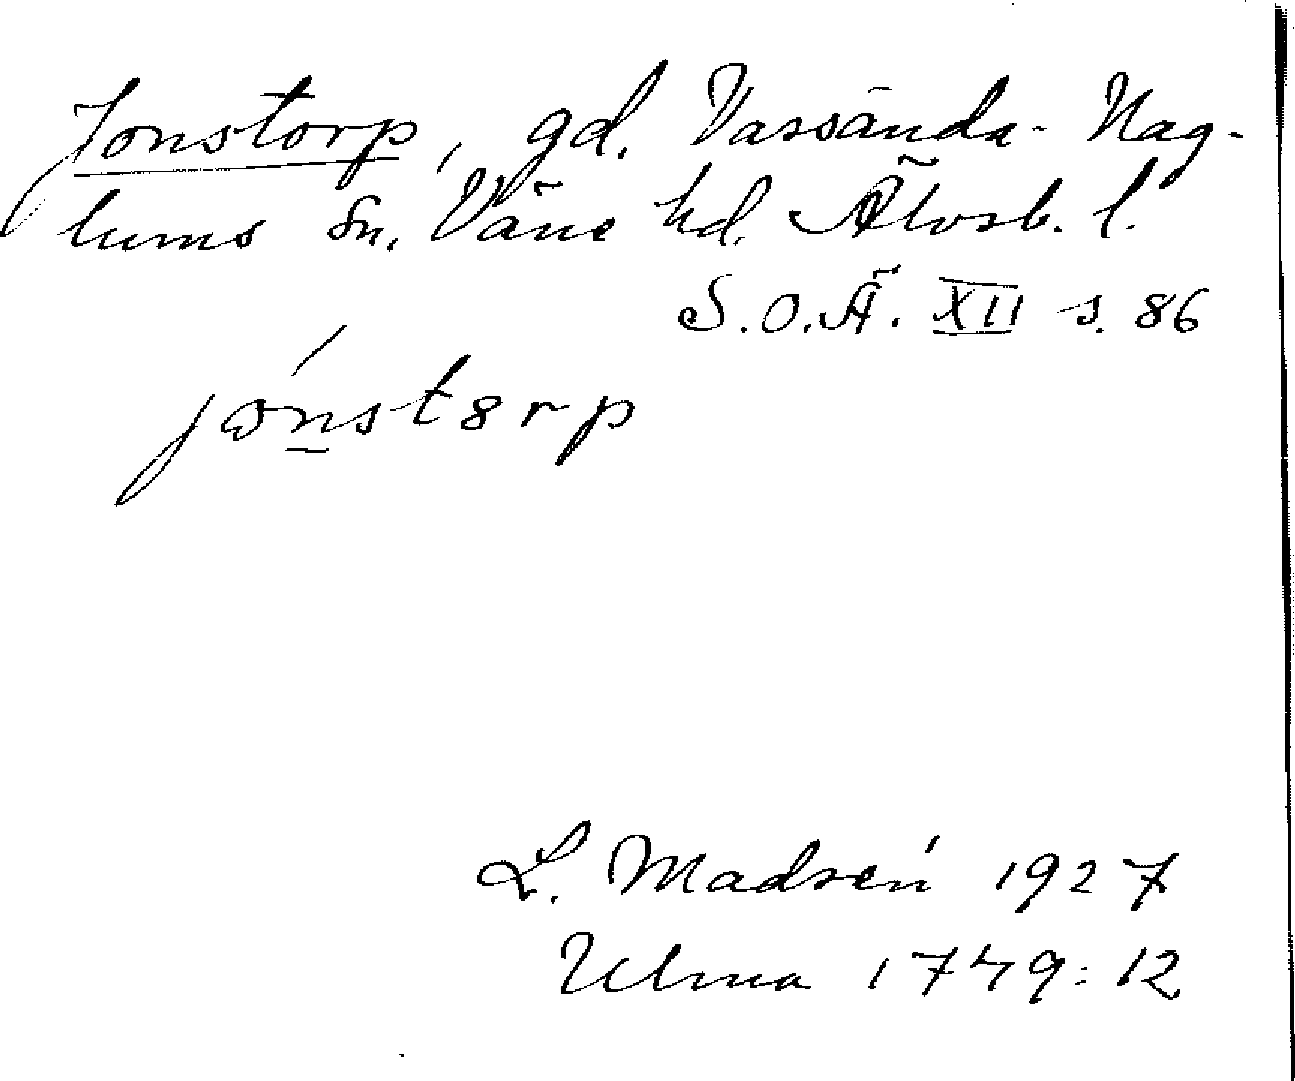 Jonstorp, gd. Vassända-Nag-
lums sn. Väne hd. Älvsb. l.
S.O.Ä. XII s. 86
L. Madsén 1927
Ulma 1749:12